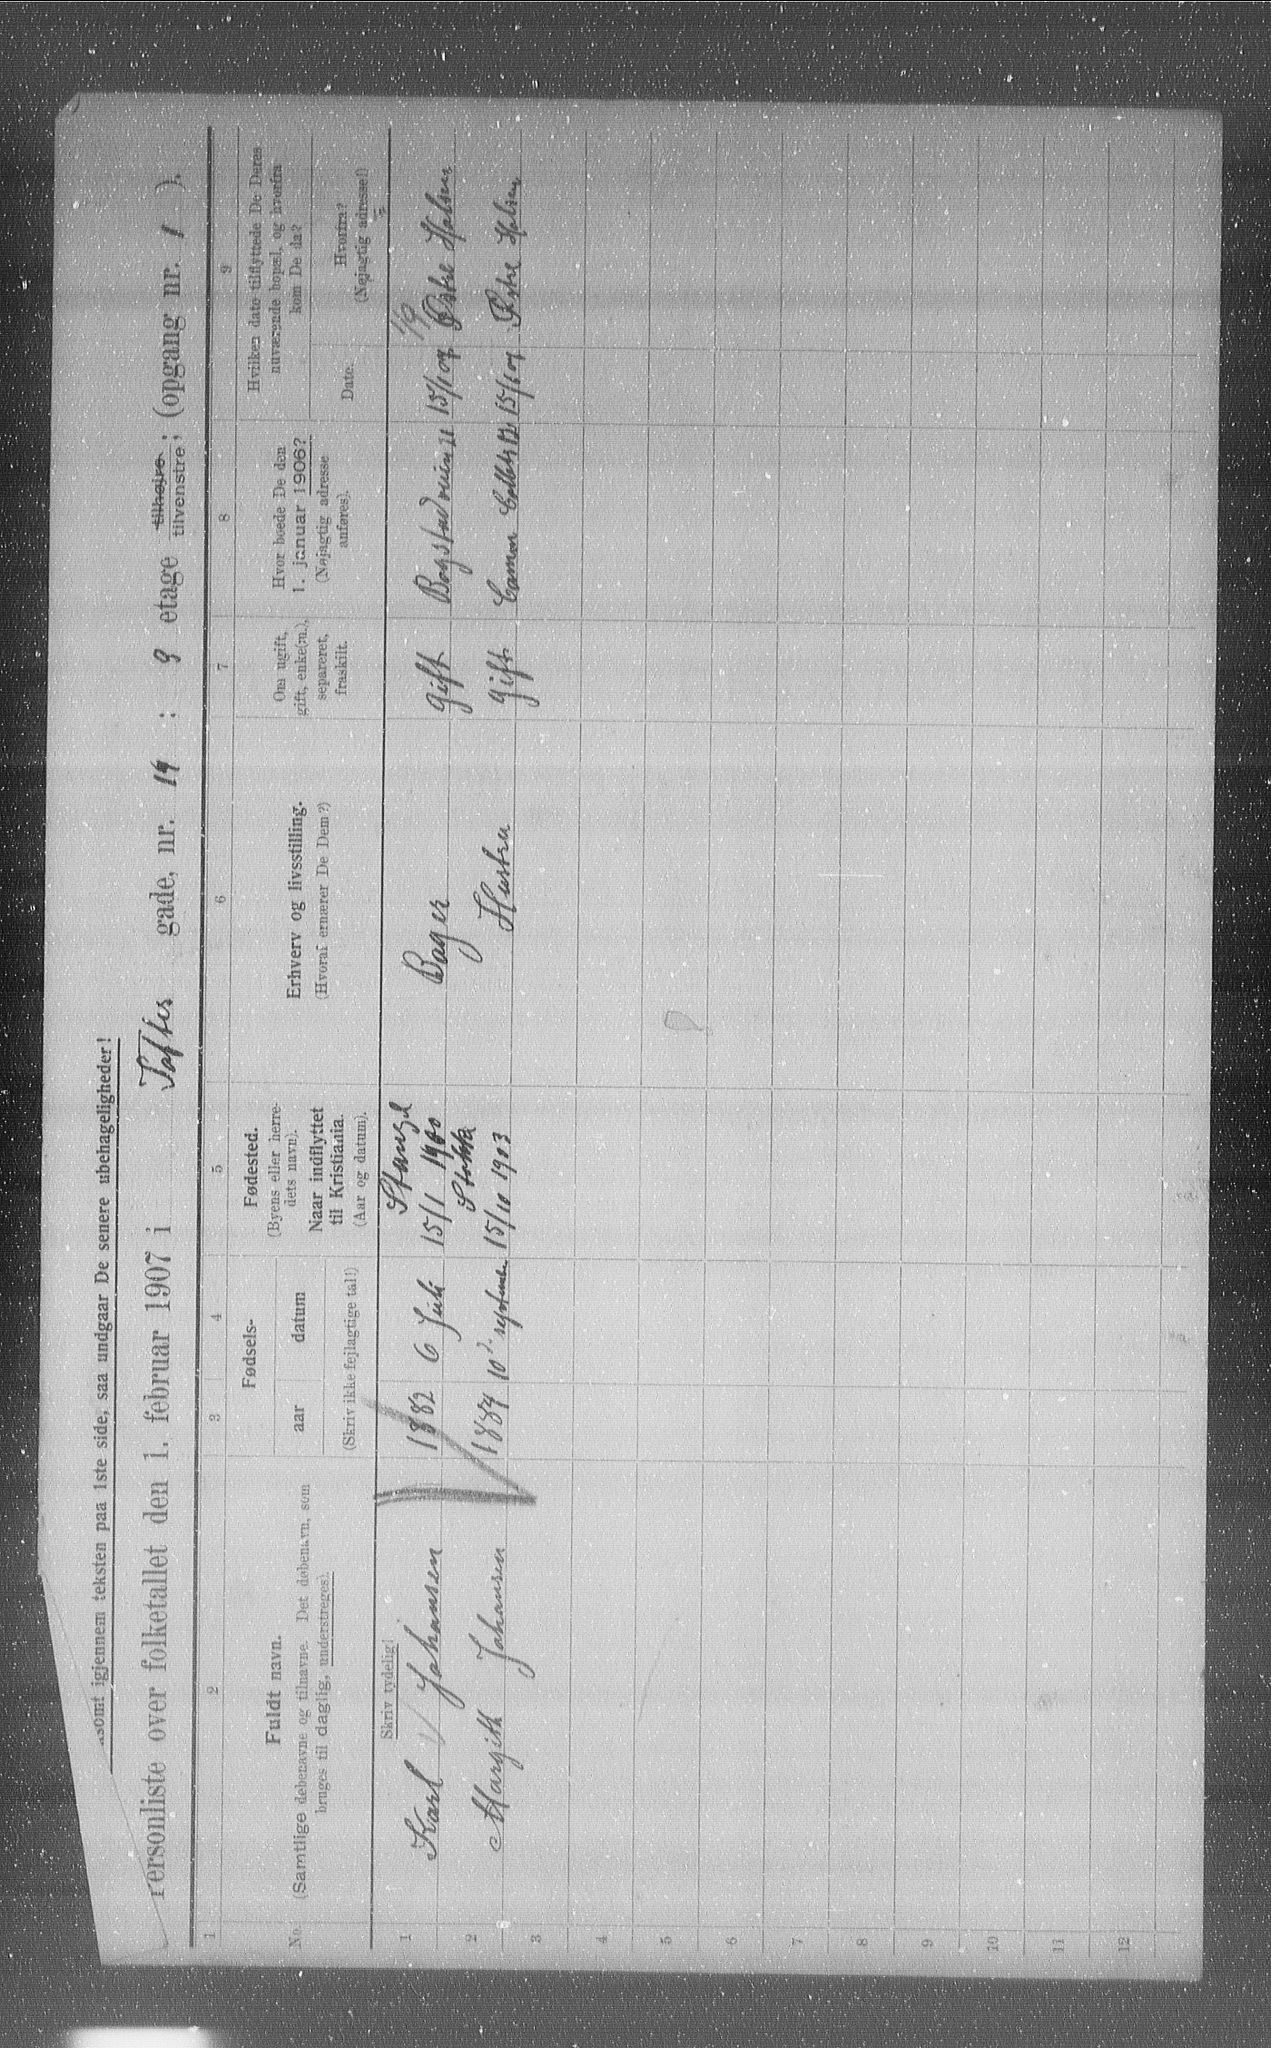 igjennem teksten paa 1ste side, saa undgaar De senere ubehageligheder!
Personliste over folketallet den 1. februar 1907 i Toftes gade, nr. 14 ; etage tilhøjre tilvenstre; (opgang nr. 1 ).
1 2 3 4 5 6 7 8 9
No.
Fuldt navn.
(Samtlige døbenavne og tilnavne. Det døbenavn, som
bruges til daglig, understreges).
Fødsels-
aar datum
(Skriv ikke fejlagtige tal!)
Fødested.
(Byens eller herre-
dets navn).
Naar indflyttet
til Kristiania.
(Aar og datum).
Erhverv og livsstilling.
(Hvoraf ernærer De Dem?)
Om ugift,
gift, enke(m.),
separeret,
fraskilt.
Hvor boede De den
1. januar 1906?
(Nøjagtig adresse
anføres).
Hvilken dato tilflyttede De Deres
nuværende bopæl, og hvorfra
kom De da?
Date.
Hvorfra?
(Nøjagtig adresse!)
Skriv tydelig!
1 Karl Johansen 1882 6 Juli Stange 15/1 1900 Bager gift 15/1 07 Østre Halsen
2 Margith Johansen 1884 10 15/10 1903 Hustru gift 15/1 07 Østre Halsen
3
4
5
6
7
8
9
10
11
12